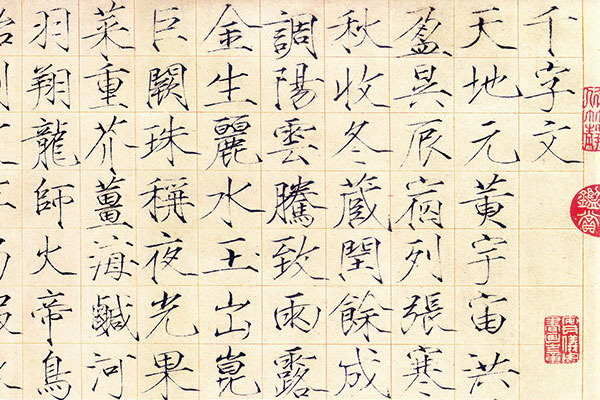 千字文
天地元黄宇宙洪
盈昃辰宿列張寒
秋收冬蔵閏餘成
調陽雲騰致雨露
金生麗水玉出崑
巨闕珠稱夜光果
菜重芥薑海鹹河
羽翔龍師火帝鳥
鑑賞